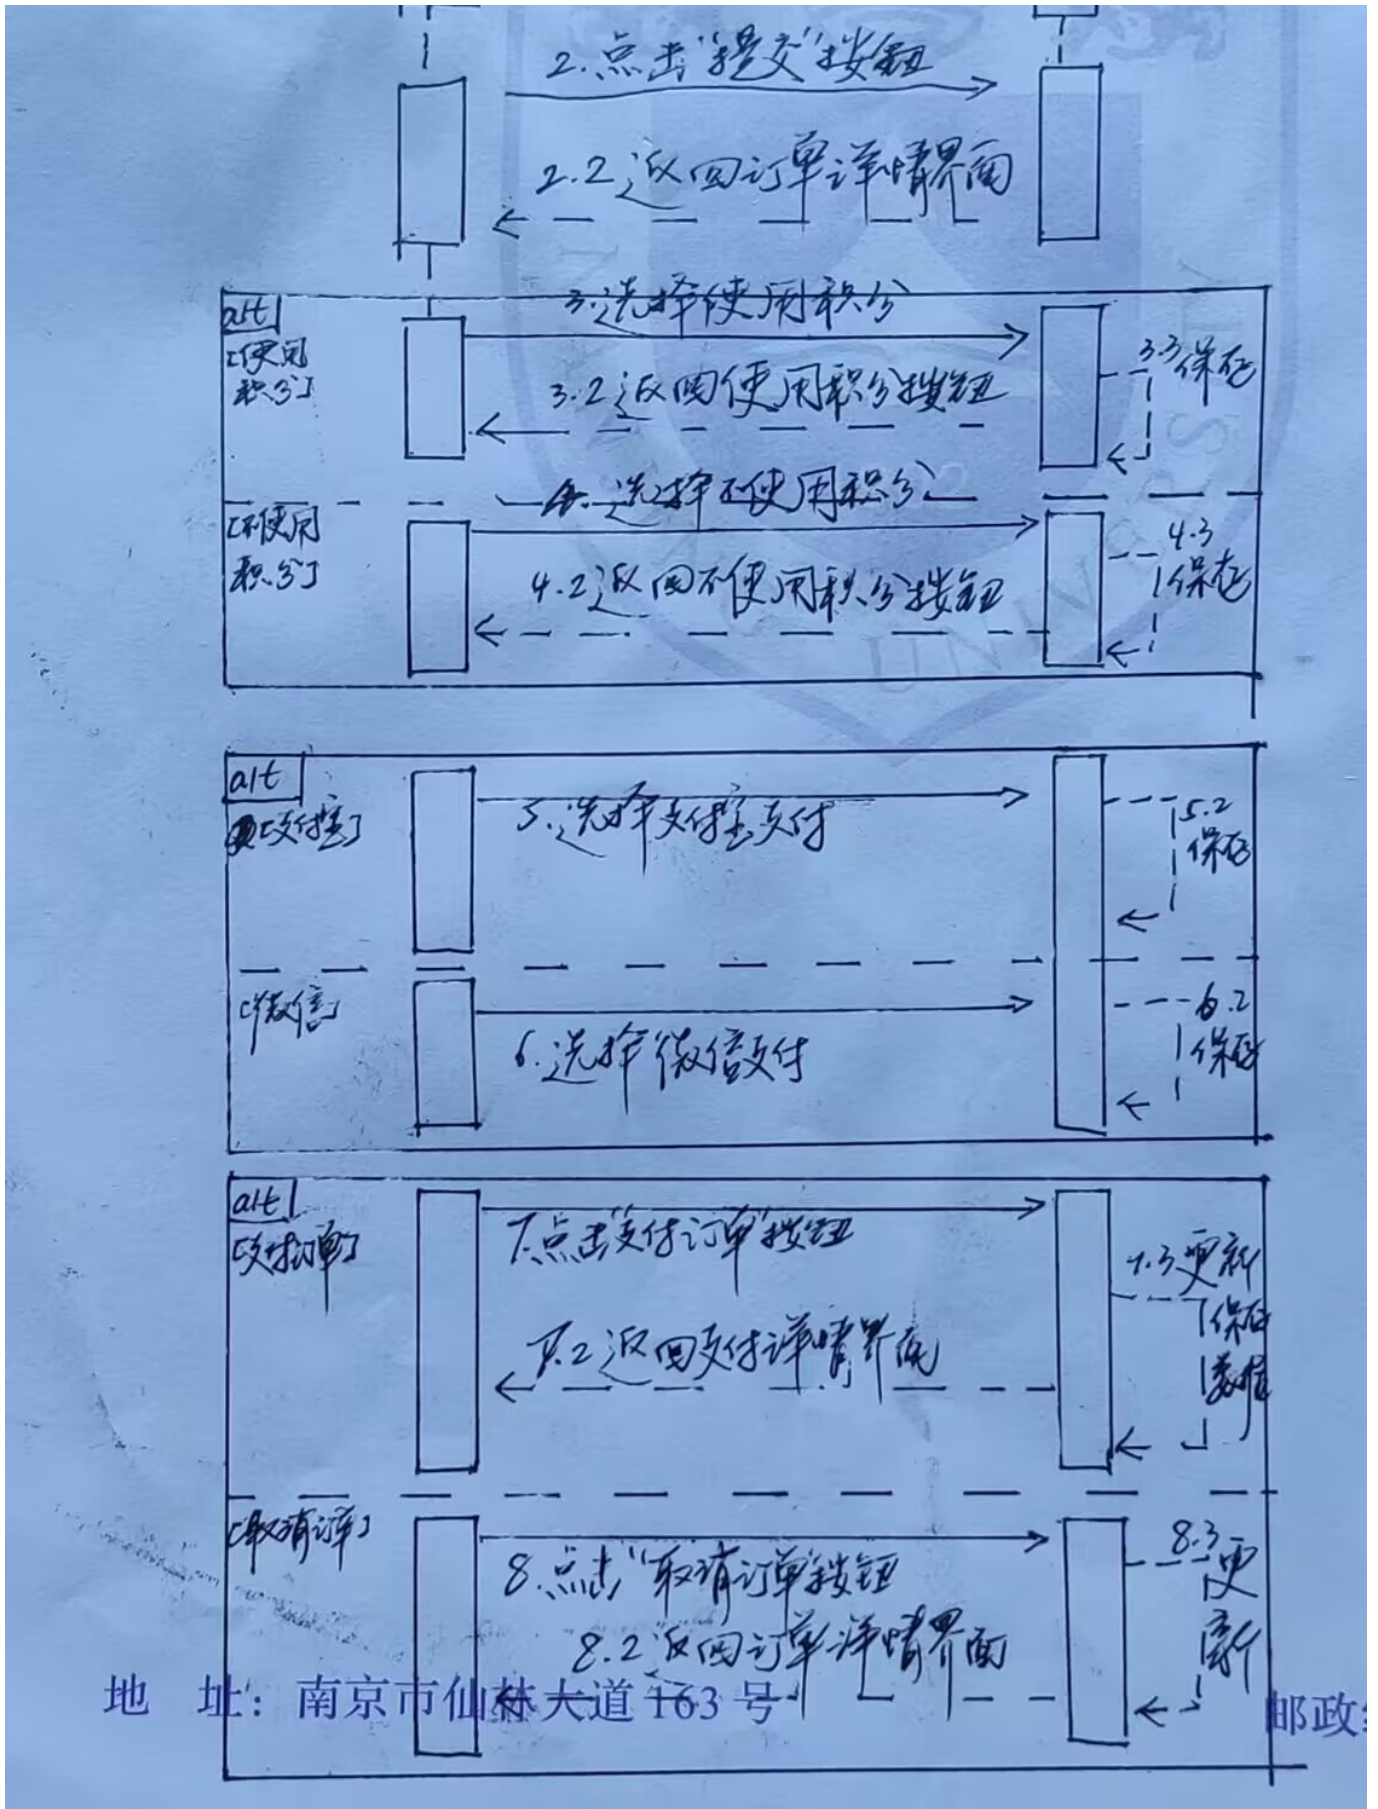 2.点击“提交”按钮
2.2返回订单详情界面
alt
[使用
积分]
3.选择使用积分
3.2返回使用积分按钮
3.3保存
[不使用
积分]
4.选择不使用积分
4.2返回不使用积分按钮
4.3
保存
alt
[支付宝]
5.选择支付宝支付
5.2
保存
[微信]
6.选择微信支付
6.2
保存
alt
[支付订单]
7.点击“支付订单”按钮
7.2返回支付详情界面
7.3更新
保存
数据
[取消订单]
8.点击“取消订单”按钮
8.2返回订单详情界面
8.3更
新
地 址：南京市仙林大道163号
邮政